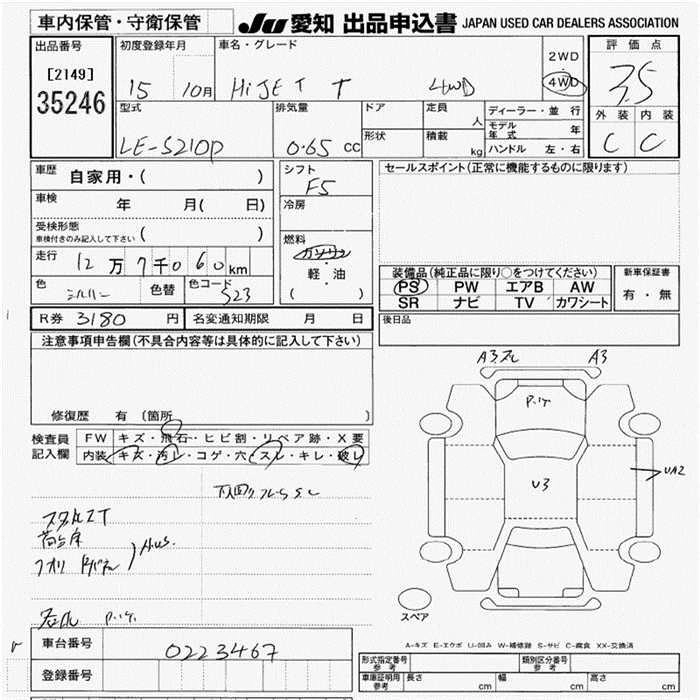 車内保管・守衛保管
JU 愛知 出品申込書 JAPAN USED CAR DEALERS ASSOCIATION
出品番号
[2149]
35246
初度登録年月
15 10月
車名・グレード
HiJET T 4WD
2WD
4WD
評価点
3.5
外装 内装
C C
型式
LE-S210P
排気量
0.65 CC
ドア
形状
定員 人
積載 kg
ディーラー・並行
モデル年式 年
ハンドル 左・右
車歴 自家用・( )
車検 年 月( 日)
受検形態
車検付きのみ記入して下さい ( )
走行 12万7千060km
色 シルバー 色替 色コード S23
シフト
F5
冷房
燃料
ガソリン
・
軽・油
( )
セールスポイント(正常に機能するものに限ります)
装備品(純正品に限り○をつけてください)
PS PW エアB AW
SR ナビ TV カワシート
新車保証書
有・無
R券 3180 円 名変通知期限 月 日
後日品
注意事項申告欄(不具合内容等は具体的に記入して下さい)
修復歴 有 (箇所 )
検査員
記入欄
FW キズ・飛石・ヒビ割・リペア跡・X要
内装 キズ・汚レ・コゲ・穴・スレ・キレ・破レ
A3 スレ A3
P.け
U3
UA2
スペア
A-キズ E-エクボ U-凹み W-補修跡 S-サビ C-腐食 XX-交換済
車台番号 0223467
登録番号
型式指定番号 参考
類別区分番号 参考
車庫証明用 参考 長さ cm 幅 cm 高さ cm